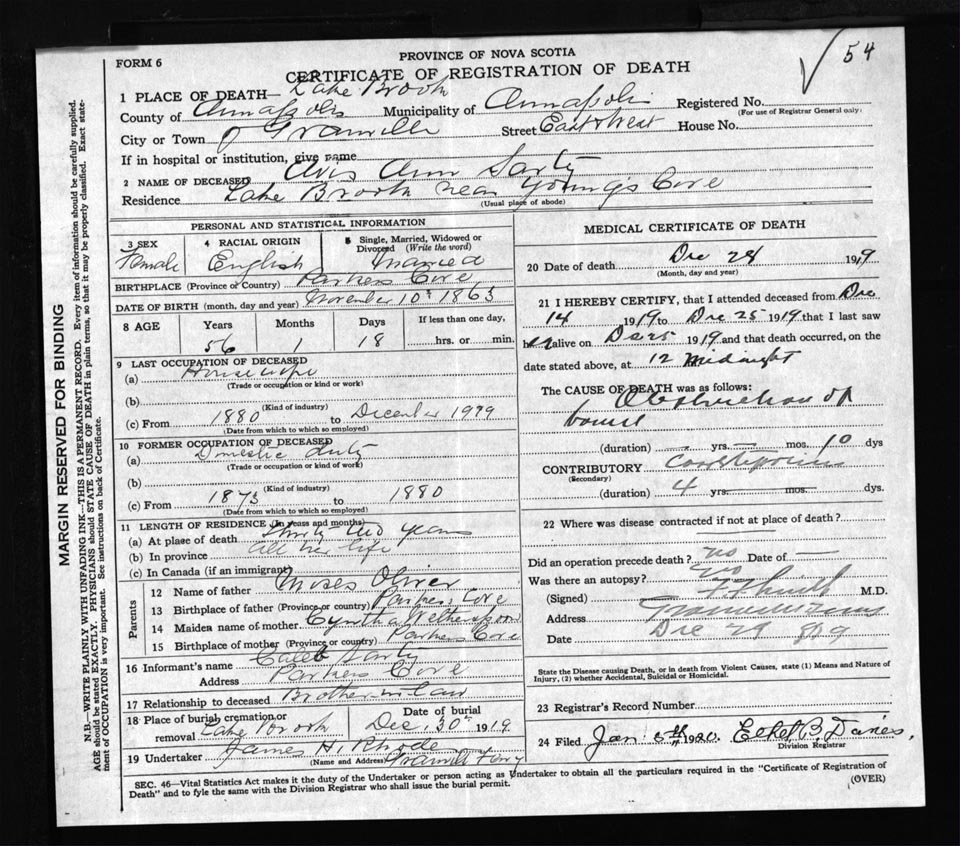 54
FORM 6
PROVINCE OF NOVA SCOTIA
CERTIFICATE OF REGISTRATION OF DEATH
1 PLACE OF DEATH— Lake Brook
County of Annapolis Municipality of Annapolis Registered No.
(For use of Registrar General only)
City or Town of Granville Street East & West House No.
If in hospital or institution, give name
2 NAME OF DECEASED Avis Ann Sarty
Residence Lake Brook near Young's Cove
(Usual place of abode)
PERSONAL AND STATISTICAL INFORMATION
3 SEX Female
4 RACIAL ORIGIN English
5 Single, Married, Widowed or Divorced (Write the word) Married
BIRTHPLACE (Province or Country) Parkers Cove
DATE OF BIRTH (month, day and year) November 10th 1863
8 AGE Years 56 Months 1 Days 18 If less than one day, hrs. or min.
9 LAST OCCUPATION OF DECEASED
(a) Housewife
(Trade or occupation or kind or work)
(b)
(Kind of industry)
(c) From 1880 to December 1919
(Date from which to which so employed)
10 FORMER OCCUPATION OF DECEASED
(a) Domestic duty
(Trade or occupation or kind of work)
(b)
(Kind of industry)
(c) From 1873 to 1880
(Date from which to which so employed)
11 LENGTH OF RESIDENCE (In years and months)
(a) At place of death Thirty two years
(b) In province all her life
(c) In Canada (if an immigrant)
Parents
12 Name of father Moses Oliver
13 Birthplace of father (Province or country) Parkers Cove
14 Maiden name of mother Cynthia Wetherspoon
15 Birthplace of mother (Province or country) Parkers Cove
16 Informant's name Caleb Sarty
Address Parkers Cove
17 Relationship to deceased Brother-in-law
18 Place of burial cremation or removal Lake Brook
Date of burial Dec. 30th 1919.
19 Undertaker James H. Rhode
(Name and Address) Granville Ferry
MEDICAL CERTIFICATE OF DEATH
20 Date of death Dec 28 1919
(Month, day and year)
21 I HEREBY CERTIFY, that I attended deceased from Dec
14 1919 to Dec 25 1919 that I last saw
her alive on Dec 25 1919 and that death occurred, on the
date stated above, at 12 Midnight
The CAUSE OF DEATH was as follows:
Obstruction of
bowel
(duration) yrs. mos. 10 dys
CONTRIBUTORY Constipation
(Secondary)
(duration) 4 yrs. mos. dys.
22 Where was disease contracted if not at place of death?
Did an operation precede death? no Date of
Was there an autopsy? no
(Signed) M.D.
Address Granville Ferry
Date Dec 29 1919
State the Disease causing Death, or in death from Violent Causes, state (1) Means and Nature of
Injury, (2) whether Accidental, Suicidal or Homicidal.
23 Registrar's Record Number
24 Filed Jan. 5th, 1920. Ethel B. Davies,
Division Registrar
SEC. 46—Vital Statistics Act makes it the duty of the Undertaker or person acting as Undertaker to obtain all the particulars required in the "Certificate of Registration of
Death" and to fyle the same with the Division Registrar who shall issue the burial permit.
(OVER)
MARGIN RESERVED FOR BINDING
N.B.—WRITE PLAINLY WITH UNFADING INK—THIS IS A PERMANENT RECORD. Every item of information should be carefully supplied.
AGE should be stated EXACTLY. PHYSICIANS should STATE CAUSE OF DEATH in plain terms, so that it may be properly classified. Exact state-
ment of OCCUPATION is very important. See instructions on back of Certificate.